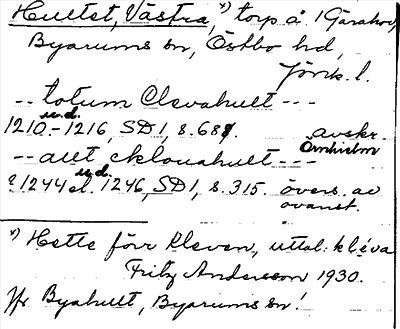 Hultet, Västra, *) torp å 1 Garahov,
Byarums sn, Östbo hd,
Jönk. l.
-- totum Clevahult ---
1210 u.d. - 1216, SD 1, s. 687. avskr.
Ornhielm
-- aut cklouahult ---
? 1244 el. u.d. 1246, SD 1, s. 315. övers. av
ovanst.
*) Hette förr Kleven, uttal: kléva
Fritz Andersson 1930.
Jfr Byahult, Byarums sn!